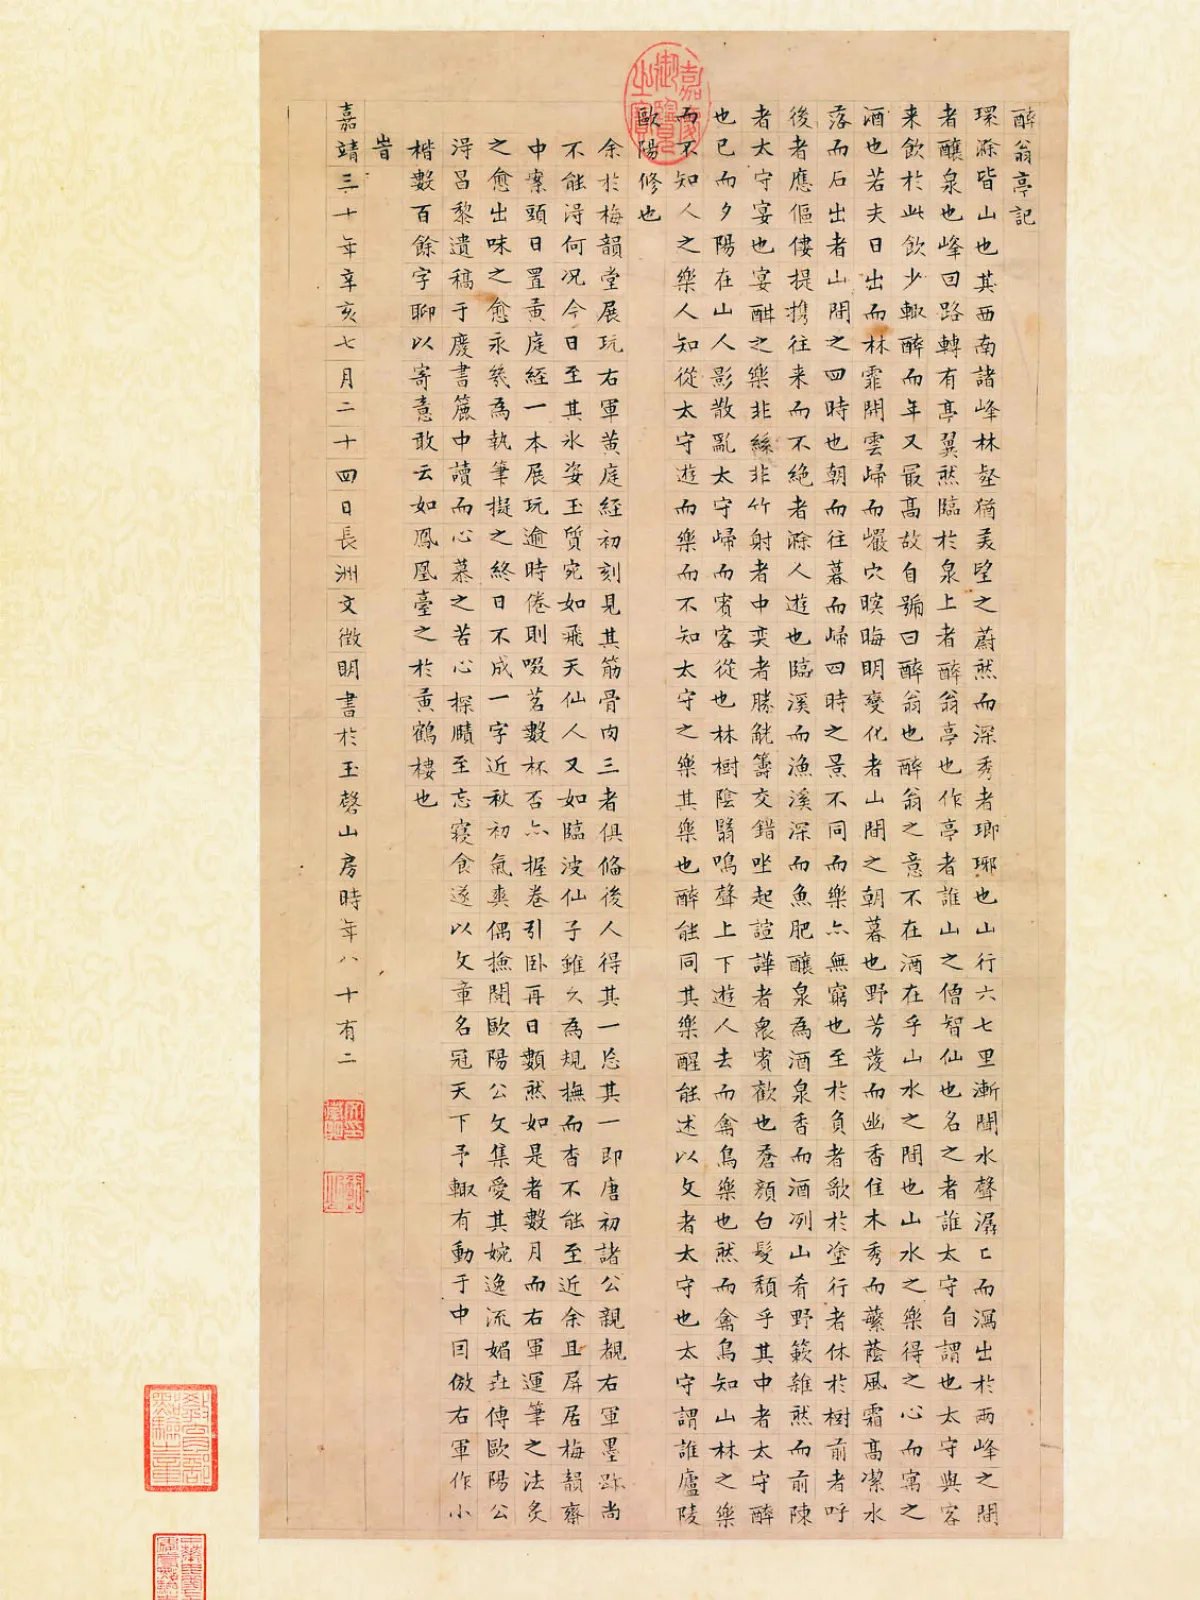 醉翁亭記
環滁皆山也其西南諸峰林壑猶美望之蔚然而深秀者瑯琊也山行六七里漸聞水聲潺〻而瀉出於兩峰之間
者釀泉也峰回路轉有亭翼然臨於泉上者醉翁亭也作亭者誰山之僧智仙也名之者誰太守自謂也太守與客
来飲於此飲少輒醉而年又最高故自號曰醉翁也醉翁之意不在酒在乎山水之間也山水之樂得之心而寓之
酒也若夫日出而林霏開雲歸而巖穴暝晦明變化者山間之朝暮也野芳發而幽香佳木秀而蘩蔭風霜高潔水
落而石出者山間之四時也朝而往暮而歸四時之景不同而樂亦無窮也至於負者歌於塗行者休於樹前者呼
後者應傴僂提攜往来而不絕者滁人遊也臨溪而漁溪深而魚肥釀泉為酒泉香而酒冽山肴野簌雜然而前陳
者太守宴也宴酣之樂非絲非竹射者中奕者勝觥籌交錯坐起諠譁者衆賓歡也蒼顏白髮頹乎其中者太守醉
也已而夕陽在山人影散亂太守歸而賓客從也林樹陰翳鳴聲上下遊人去而禽鳥樂也然而禽鳥知山林之樂
而不知人之樂人知從太守遊而樂而不知太守之樂其樂也醉能同其樂醒能述以文者太守也太守謂誰廬陵
歐陽修也
余於梅韻堂展玩右軍黄庭經初刻見其筋骨肉三者俱俻後人得其一忘其一即唐初諸公親覩右軍墨跡尚
不能淂何況今日至其氷姿玉質宛如飛天仙人又如臨波仙子雖久為規撫而杳不能至近余且屏居梅韻齋
中案頭日置黄庭經一本展玩逾時倦則啜茗數杯否亦握卷引卧再日數然如是者數月而右軍運筆之法炙
之愈出味之愈永幾為執筆擬之終日不成一字近秋初氣爽偶撿閱歐陽公文集愛其婉逸流媚且傳歐陽公
淂昌黎遺稿于廢書簏中讀而心慕之苦心探賾至忘寢食遂以文章名冠天下予輒有動于中因倣右軍作小
楷數百餘字聊以寄意敢云如鳳凰臺之於黄鶴樓也
旹
嘉靖三十年辛亥七月二十四日長洲文徵明書於玉磬山房時年八十有二
嘉慶御覽之寶